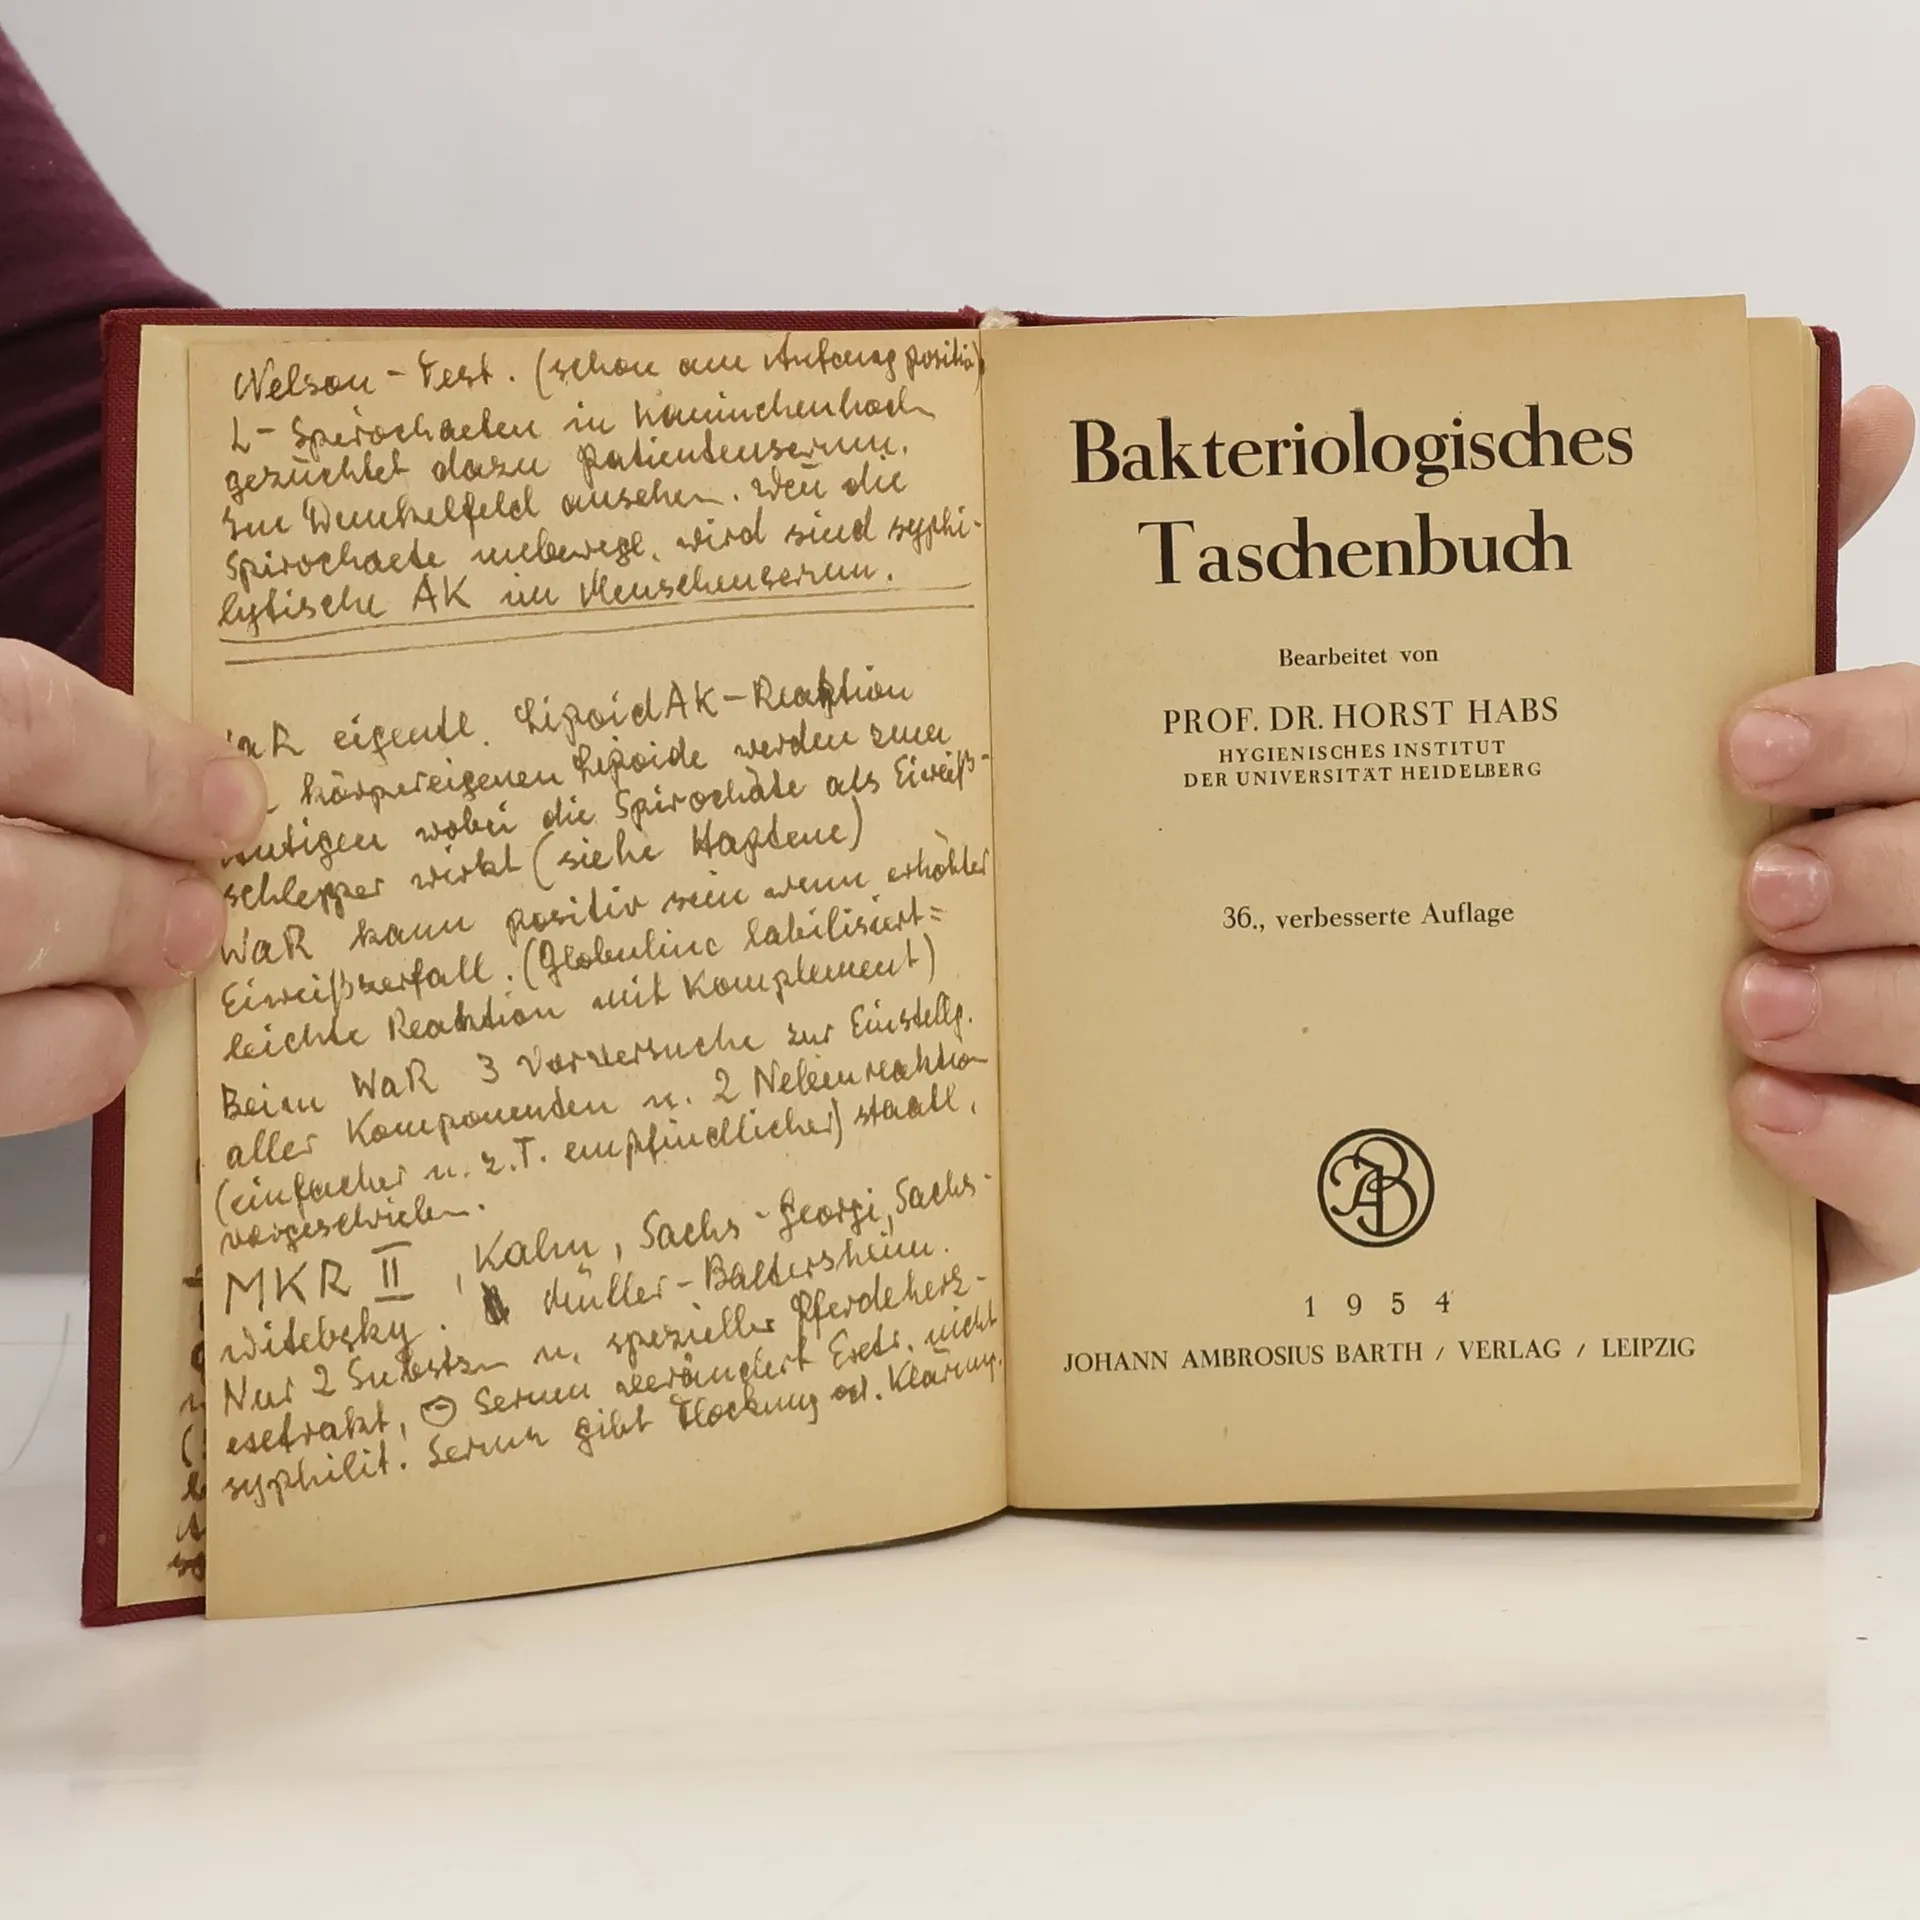 Nelson-Test. (schon am Anfang positiv)
L-Spirochaeten in Kaninchenhoden
gezüchtet dazu Patientenserum.
Im Dunkelfeld ansehen. Wen̄ die
Spirochaete unbewegl. wird sind syphi-
lytische AK im Menschenserum.
WaR eigentl. LipoidAK-Reaktion
körpereigenen Lipoide werden zum
Antigen wobei die Spirochäte als Eiweiß-
schlepper wirkt (siehe Haptene)
WaR kann positiv sein wenn erhöhter
Eiweißzerfall. (Globuline labilisiert=
leichte Reaktion mit Komplement)
Beim WaR 3 Vorversuche zur Einstellg.
aller Komponenten u. 2 Nebenreaktion
(einfacher u. z.T. empfindlicher) staatl.
vorgeschrieben.
MKR II, Kahn, Sachs-Georgi, Sachs-
Witebsky. Müller-Ballersheim.
Nur 2 Substzn u. spezieller Pferdeherz-
extrakt, ⊖ Serum verändert Extr. nicht
syphilit. Serum gibt Flockung od. Klärung.
Bakteriologisches
Taschenbuch
Bearbeitet von
PROF. DR. HORST HABS
HYGIENISCHES INSTITUT
DER UNIVERSITÄT HEIDELBERG
36., verbesserte Auflage
JAB
1954
JOHANN AMBROSIUS BARTH / VERLAG / LEIPZIG